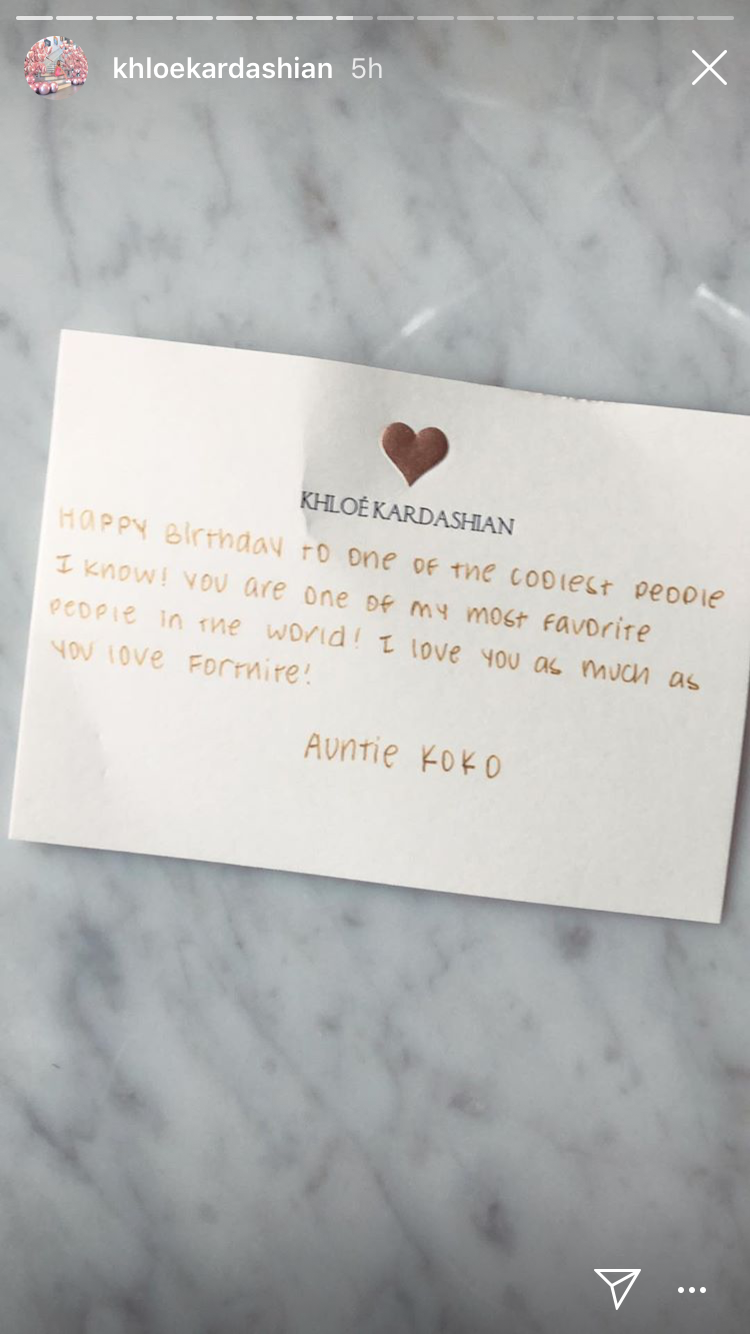 khloekardashian 5h
KHLOÉ KARDASHIAN
Happy Birthday to one of the coolest people
I know! You are one of my most favorite
people in the world! I love you as much as
you love Fortnite!
Auntie KoKo